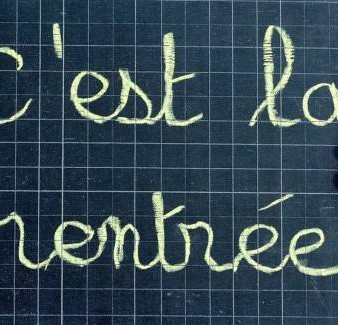 c'est la
rentrée